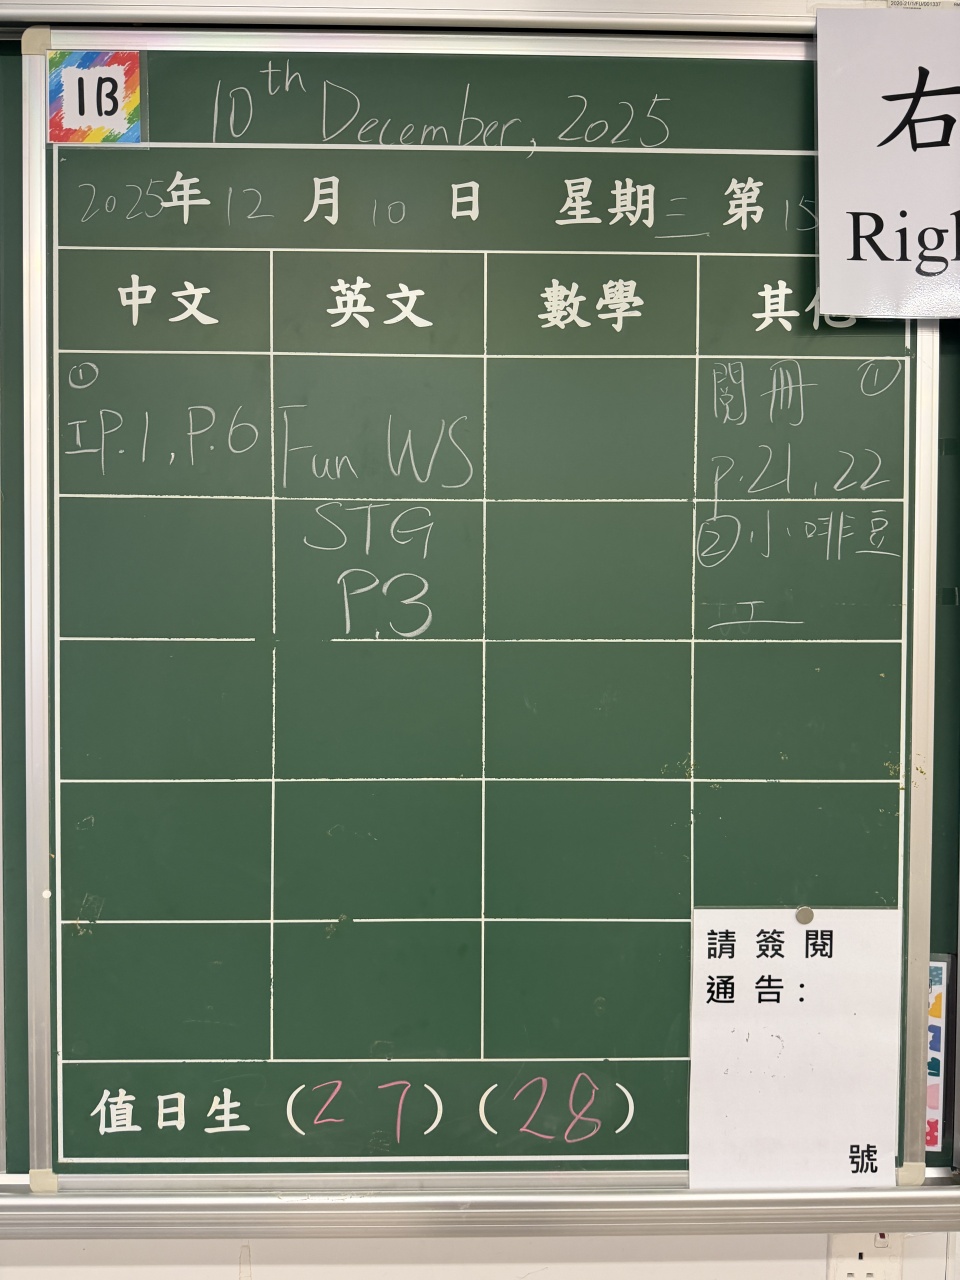 1B
10th December, 2025
2025年 12 月 10 日 星期三 第 15
中文 英文 數學 其他
①
工P.1, P.6
Fun WS
閱冊 ①
p.21, 22
STG
P.3
② 小啡豆
工
值日生 (27) (28)
請簽閱
通告:
號
右
Righ